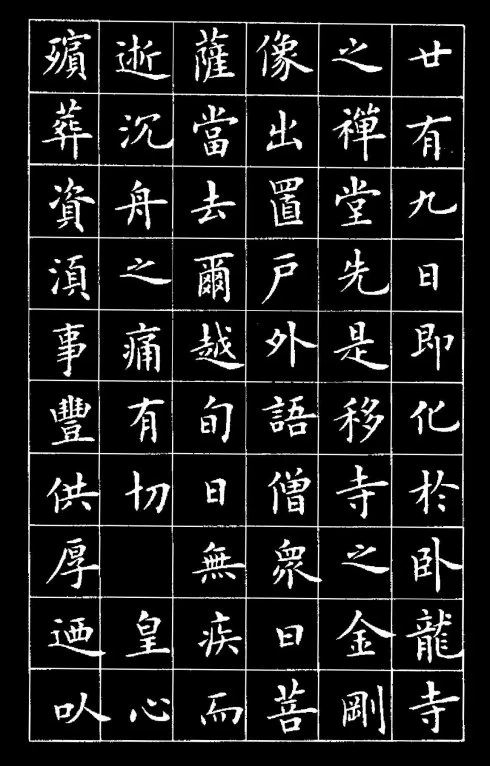 廿有九日即化於卧龍寺
之禪堂先是移寺之金剛
像出置户外語僧衆曰菩
薩當去爾越旬日無疾而
逝沉舟之痛有切 皇心
殯葬資湏事豐供厚迺以